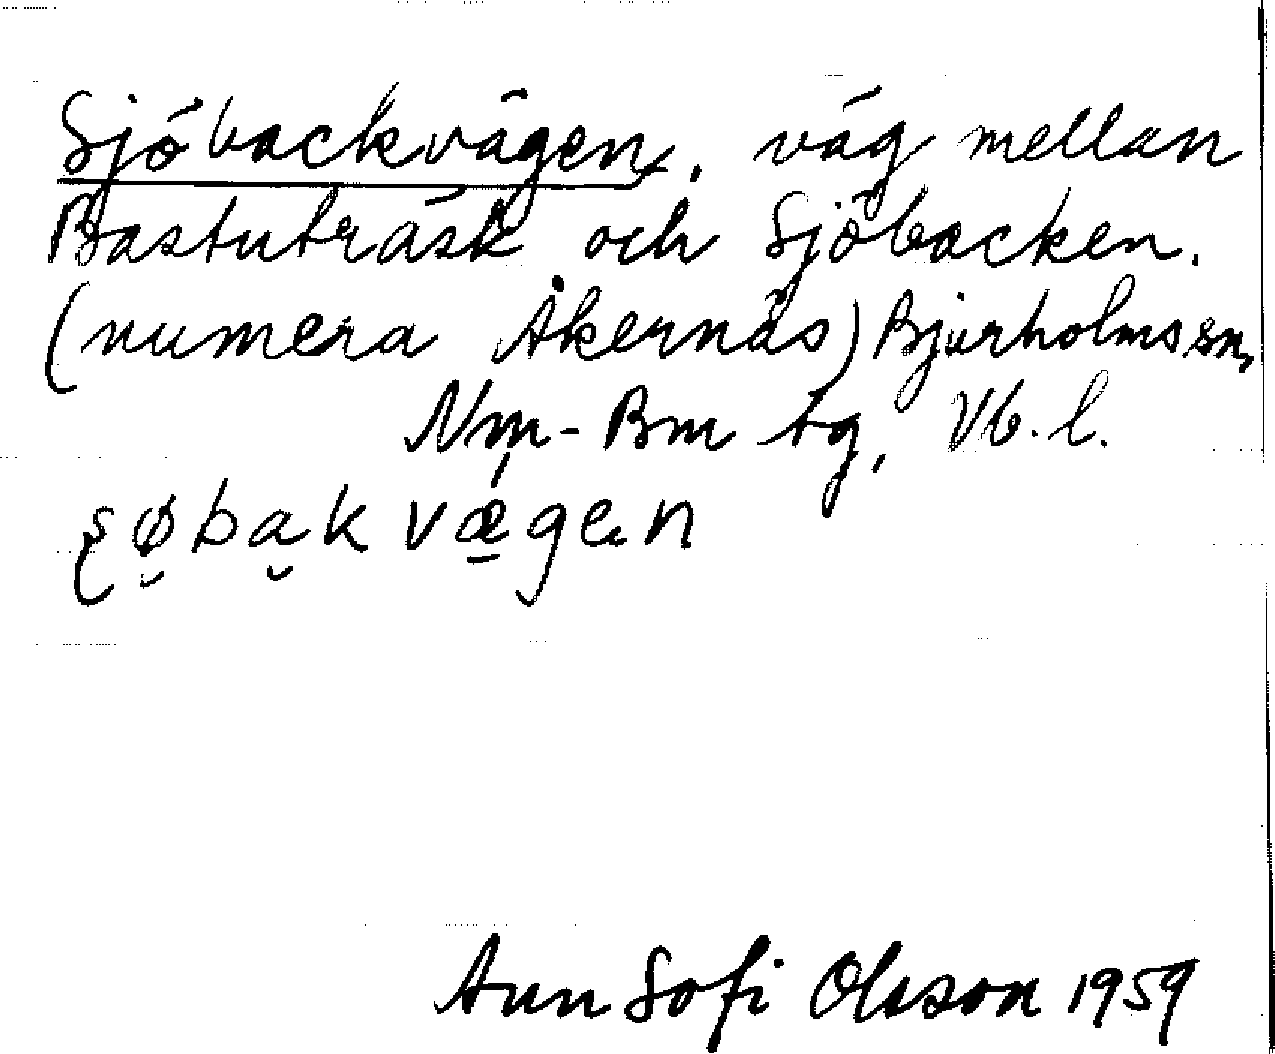 Sjöbackvägen, väg mellan
Bastuträsk och Sjöbacken.
(numera Åkernäs) Bjurholms sn,
Nmp-Bm tg, Vb. l.
ʂøbak vægen
Ann Sofi Olsson 1959